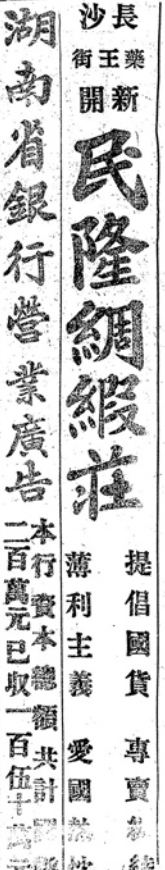 長沙
藥王街
新開
民隆綢緞莊
提倡國貨 專賣
薄利主義 愛國
湖南省銀行營業廣告
本行資本總額共計
二百萬元已收一百伍十